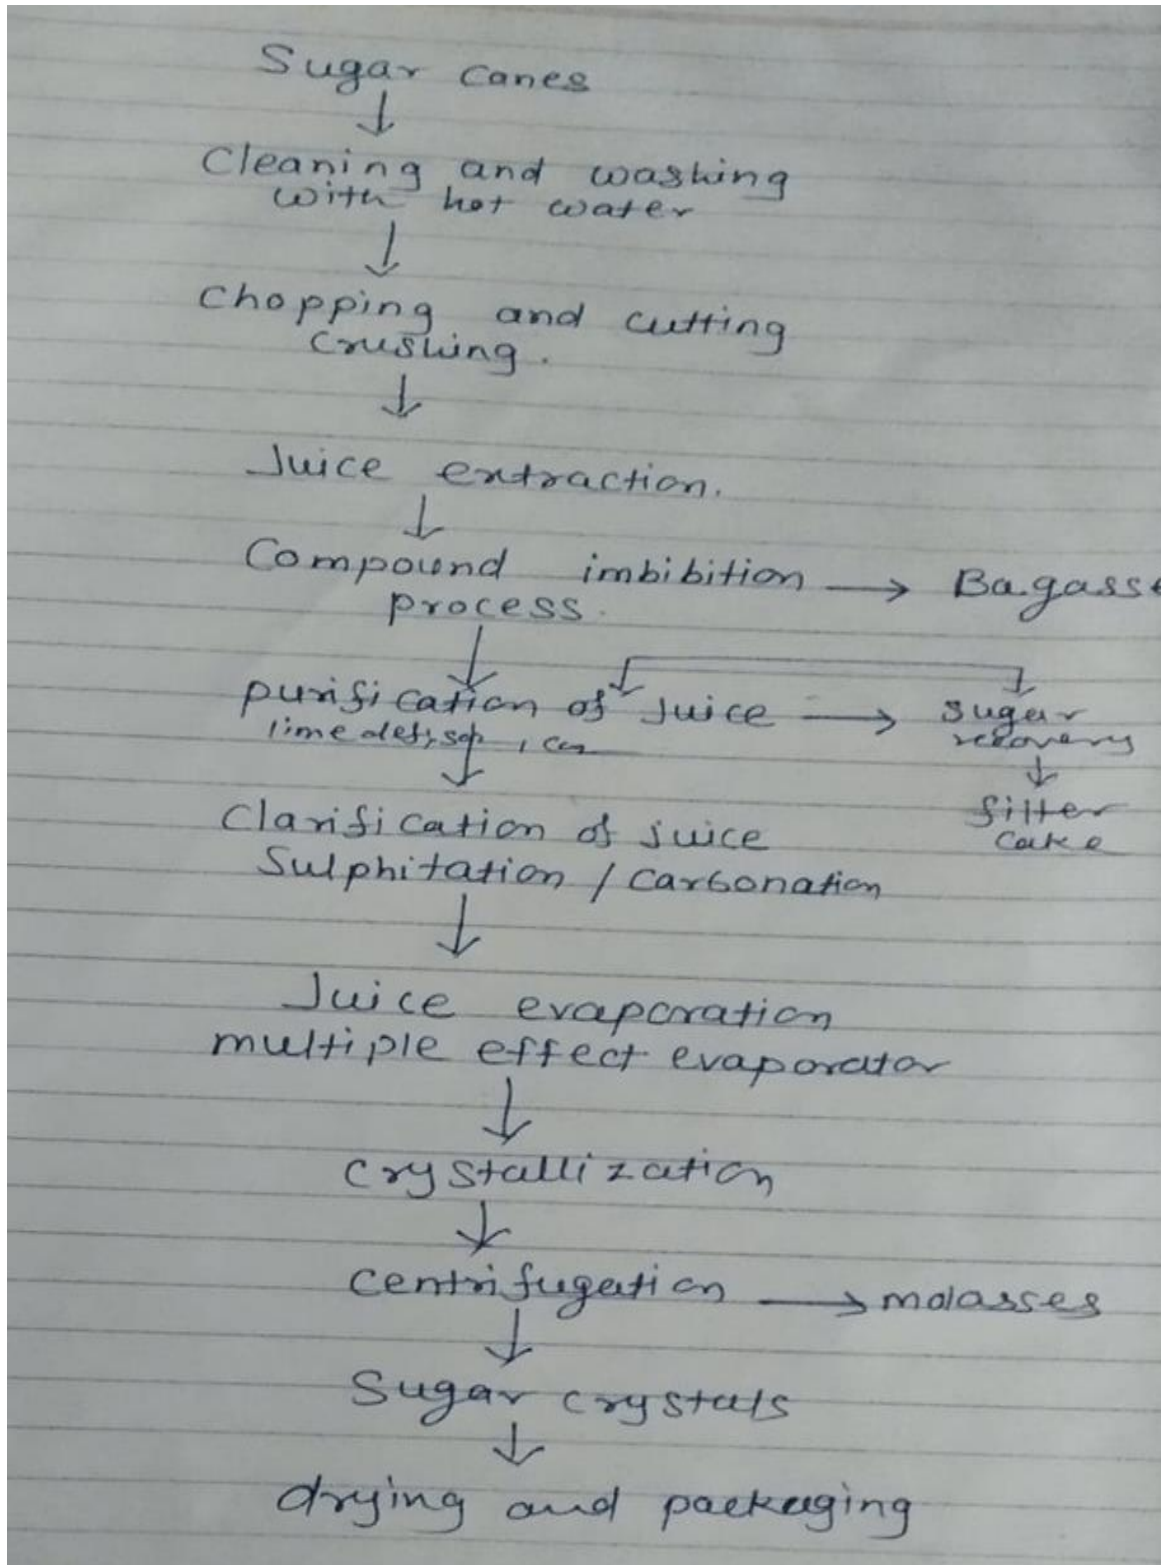 Sugar canes
Cleaning and washing
with hot water
Chopping and cutting
crushing.
Juice extraction.
Compound imbibition → Bagasse
process.
purification of Juice → sugar
recovery
lime
filter
cake
Clarification of juice
Sulphitation / carbonation
Juice evaporation
multiple effect evaporator
crystallization
centrifugation → molasses
Sugar crystals
drying and packaging